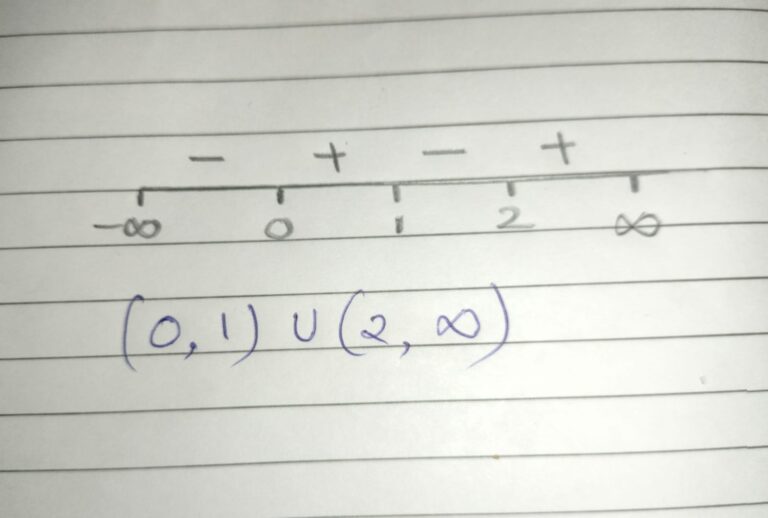 − + − +
−∞ 0 1 2 ∞
(0, 1) ∪ (2, ∞)